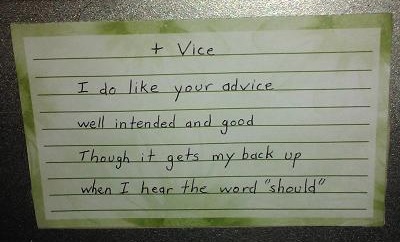 + Vice
I do like your advice
well intended and good
Though it gets my back up
when I hear the word "should"